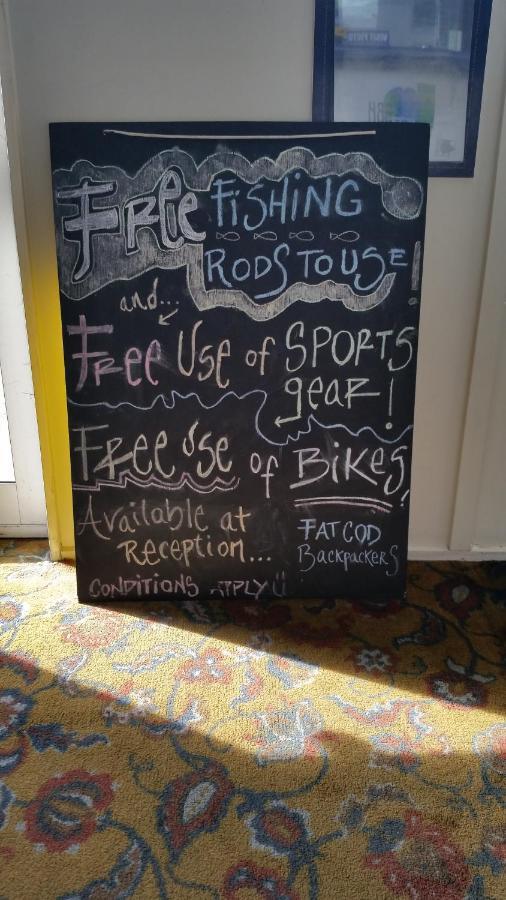 Free FiSHING
RODS TO USE!
and...
Free Use of SPORTS
gear!
Free use of BiKes!
Available at
Reception...
FAT COD
Backpackers
CONDITIONS APPLY Ü